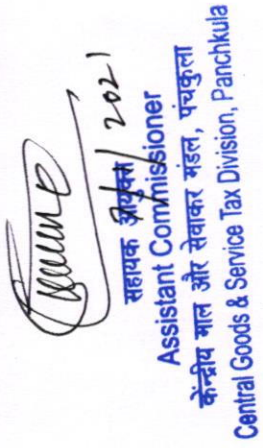 7/1/2021
सहायक आयुक्त
Assistant Commissioner
केन्द्रीय माल और सेवाकर मंडल, पंचकुला
Central Goods & Service Tax Division, Panchkula